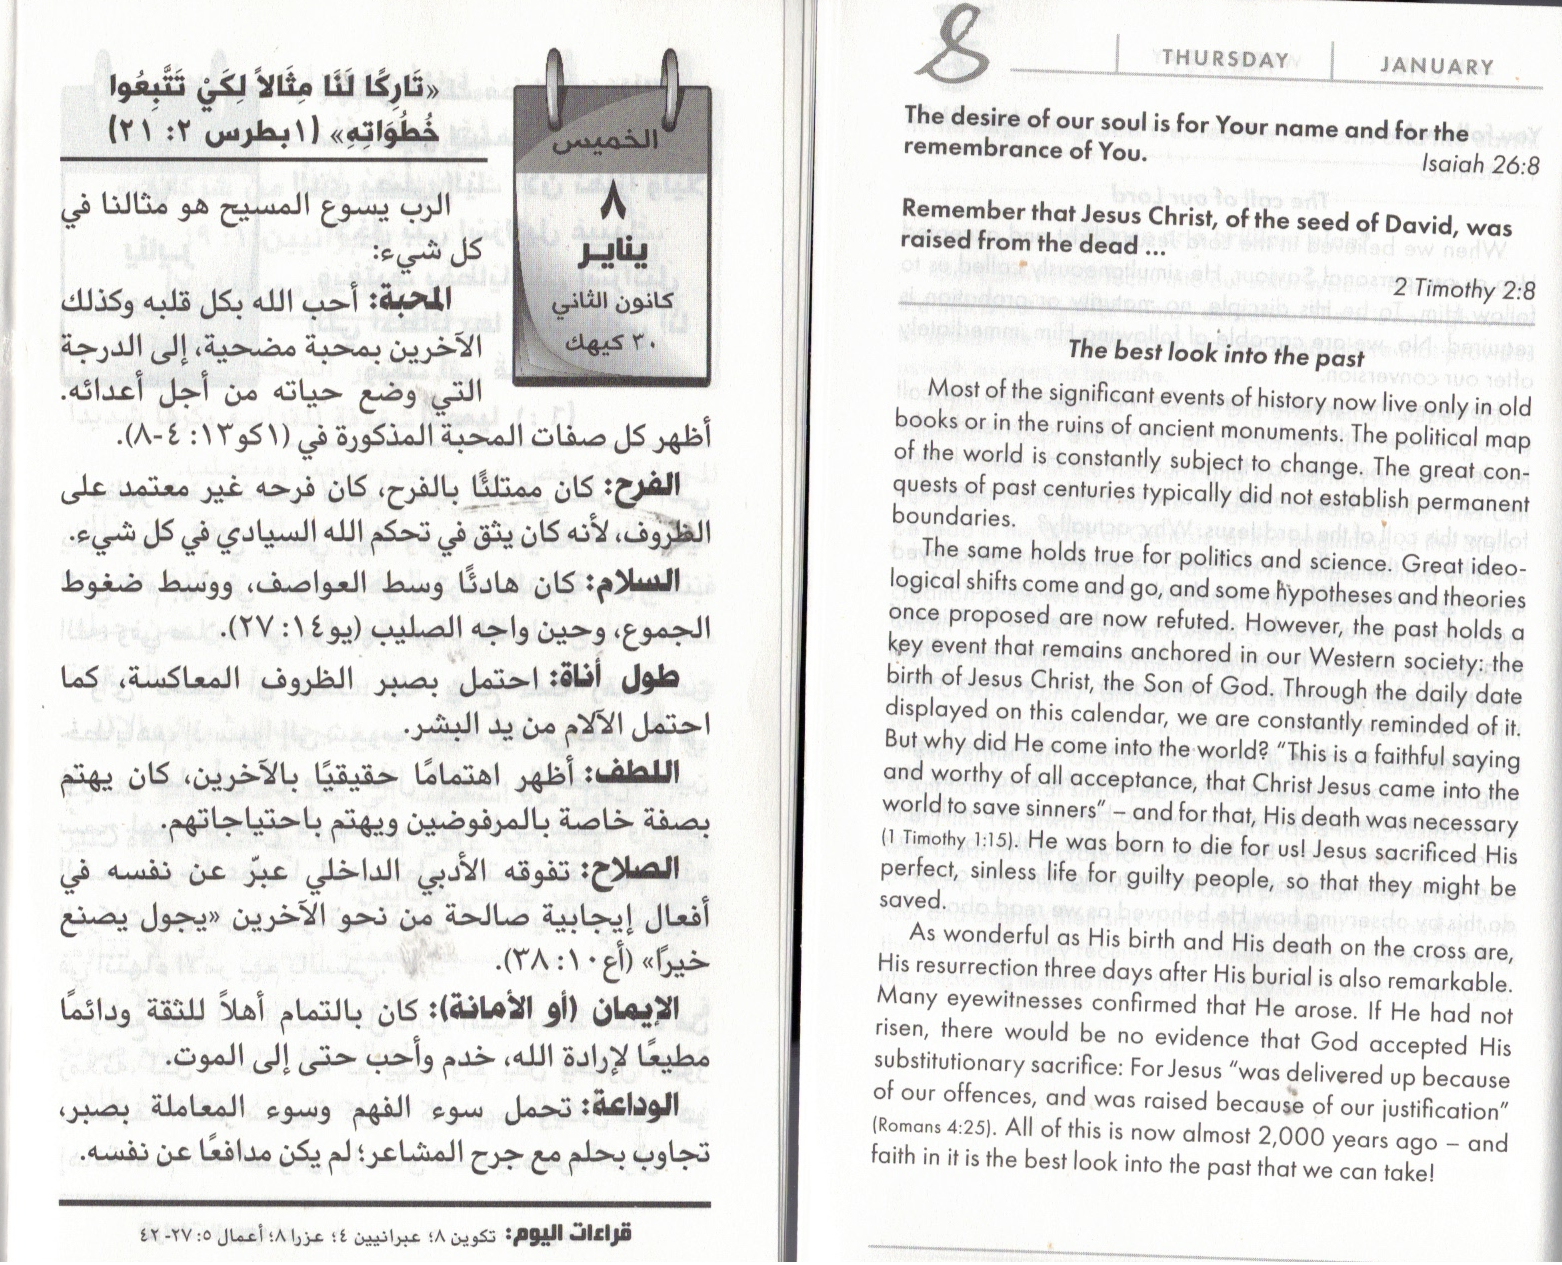 «تَارِكًا لَنَا مِثَالاً لِكَيْ تَتَّبِعُوا
خُطُوَاتِهِ» (١بطرس ٢: ٢١)
الخميس
٨
يناير
كانون الثاني
٣٠ كيهك
الرب يسوع المسيح هو مثالنا في
كل شيء:
المحبة: أحب الله بكل قلبه وكذلك
الآخرين بمحبة مضحية، إلى الدرجة
التي وضع حياته من أجل أعدائه.
أظهر كل صفات المحبة المذكورة في (١كو١٣: ٤-٨).
الفرح: كان ممتلئًا بالفرح، كان فرحه غير معتمد على
الظروف، لأنه كان يثق في تحكم الله السيادي في كل شيء.
السلام: كان هادئًا وسط العواصف، ووسط ضغوط
الجموع، وحين واجه الصليب (يو١٤: ٢٧).
طول أناة: احتمل بصبر الظروف المعاكسة، كما
احتمل الآلام من يد البشر.
اللطف: أظهر اهتمامًا حقيقيًا بالآخرين، كان يهتم
بصفة خاصة بالمرفوضين ويهتم باحتياجاتهم.
الصلاح: تفوقه الأدبي الداخلي عبّر عن نفسه في
أفعال إيجابية صالحة من نحو الآخرين «يجول يصنع
خيرًا» (أع١٠: ٣٨).
الإيمان (أو الأمانة): كان بالتمام أهلاً للثقة ودائمًا
مطيعًا لإرادة الله، خدم وأحب حتى إلى الموت.
الوداعة: تحمل سوء الفهم وسوء المعاملة بصبر،
تجاوب بحلم مع جرح المشاعر؛ لم يكن مدافعًا عن نفسه.
قراءات اليوم: تكوين ٨؛ عبرانيين ٤؛ عزرا ٨؛ أعمال ٥: ٢٧- ٤٢
8
THURSDAY
JANUARY
The desire of our soul is for Your name and for the
remembrance of You. Isaiah 26:8
Remember that Jesus Christ, of the seed of David, was
raised from the dead ...
2 Timothy 2:8
The best look into the past
Most of the significant events of history now live only in old
books or in the ruins of ancient monuments. The political map
of the world is constantly subject to change. The great con-
quests of past centuries typically did not establish permanent
boundaries.
The same holds true for politics and science. Great ideo-
logical shifts come and go, and some hypotheses and theories
once proposed are now refuted. However, the past holds a
key event that remains anchored in our Western society: the
birth of Jesus Christ, the Son of God. Through the daily date
displayed on this calendar, we are constantly reminded of it.
But why did He come into the world? “This is a faithful saying
and worthy of all acceptance, that Christ Jesus came into the
world to save sinners” – and for that, His death was necessary
(1 Timothy 1:15). He was born to die for us! Jesus sacrificed His
perfect, sinless life for guilty people, so that they might be
saved.
As wonderful as His birth and His death on the cross are,
His resurrection three days after His burial is also remarkable.
Many eyewitnesses confirmed that He arose. If He had not
risen, there would be no evidence that God accepted His
substitutionary sacrifice: For Jesus “was delivered up because
of our offences, and was raised because of our justification”
(Romans 4:25). All of this is now almost 2,000 years ago – and
faith in it is the best look into the past that we can take!